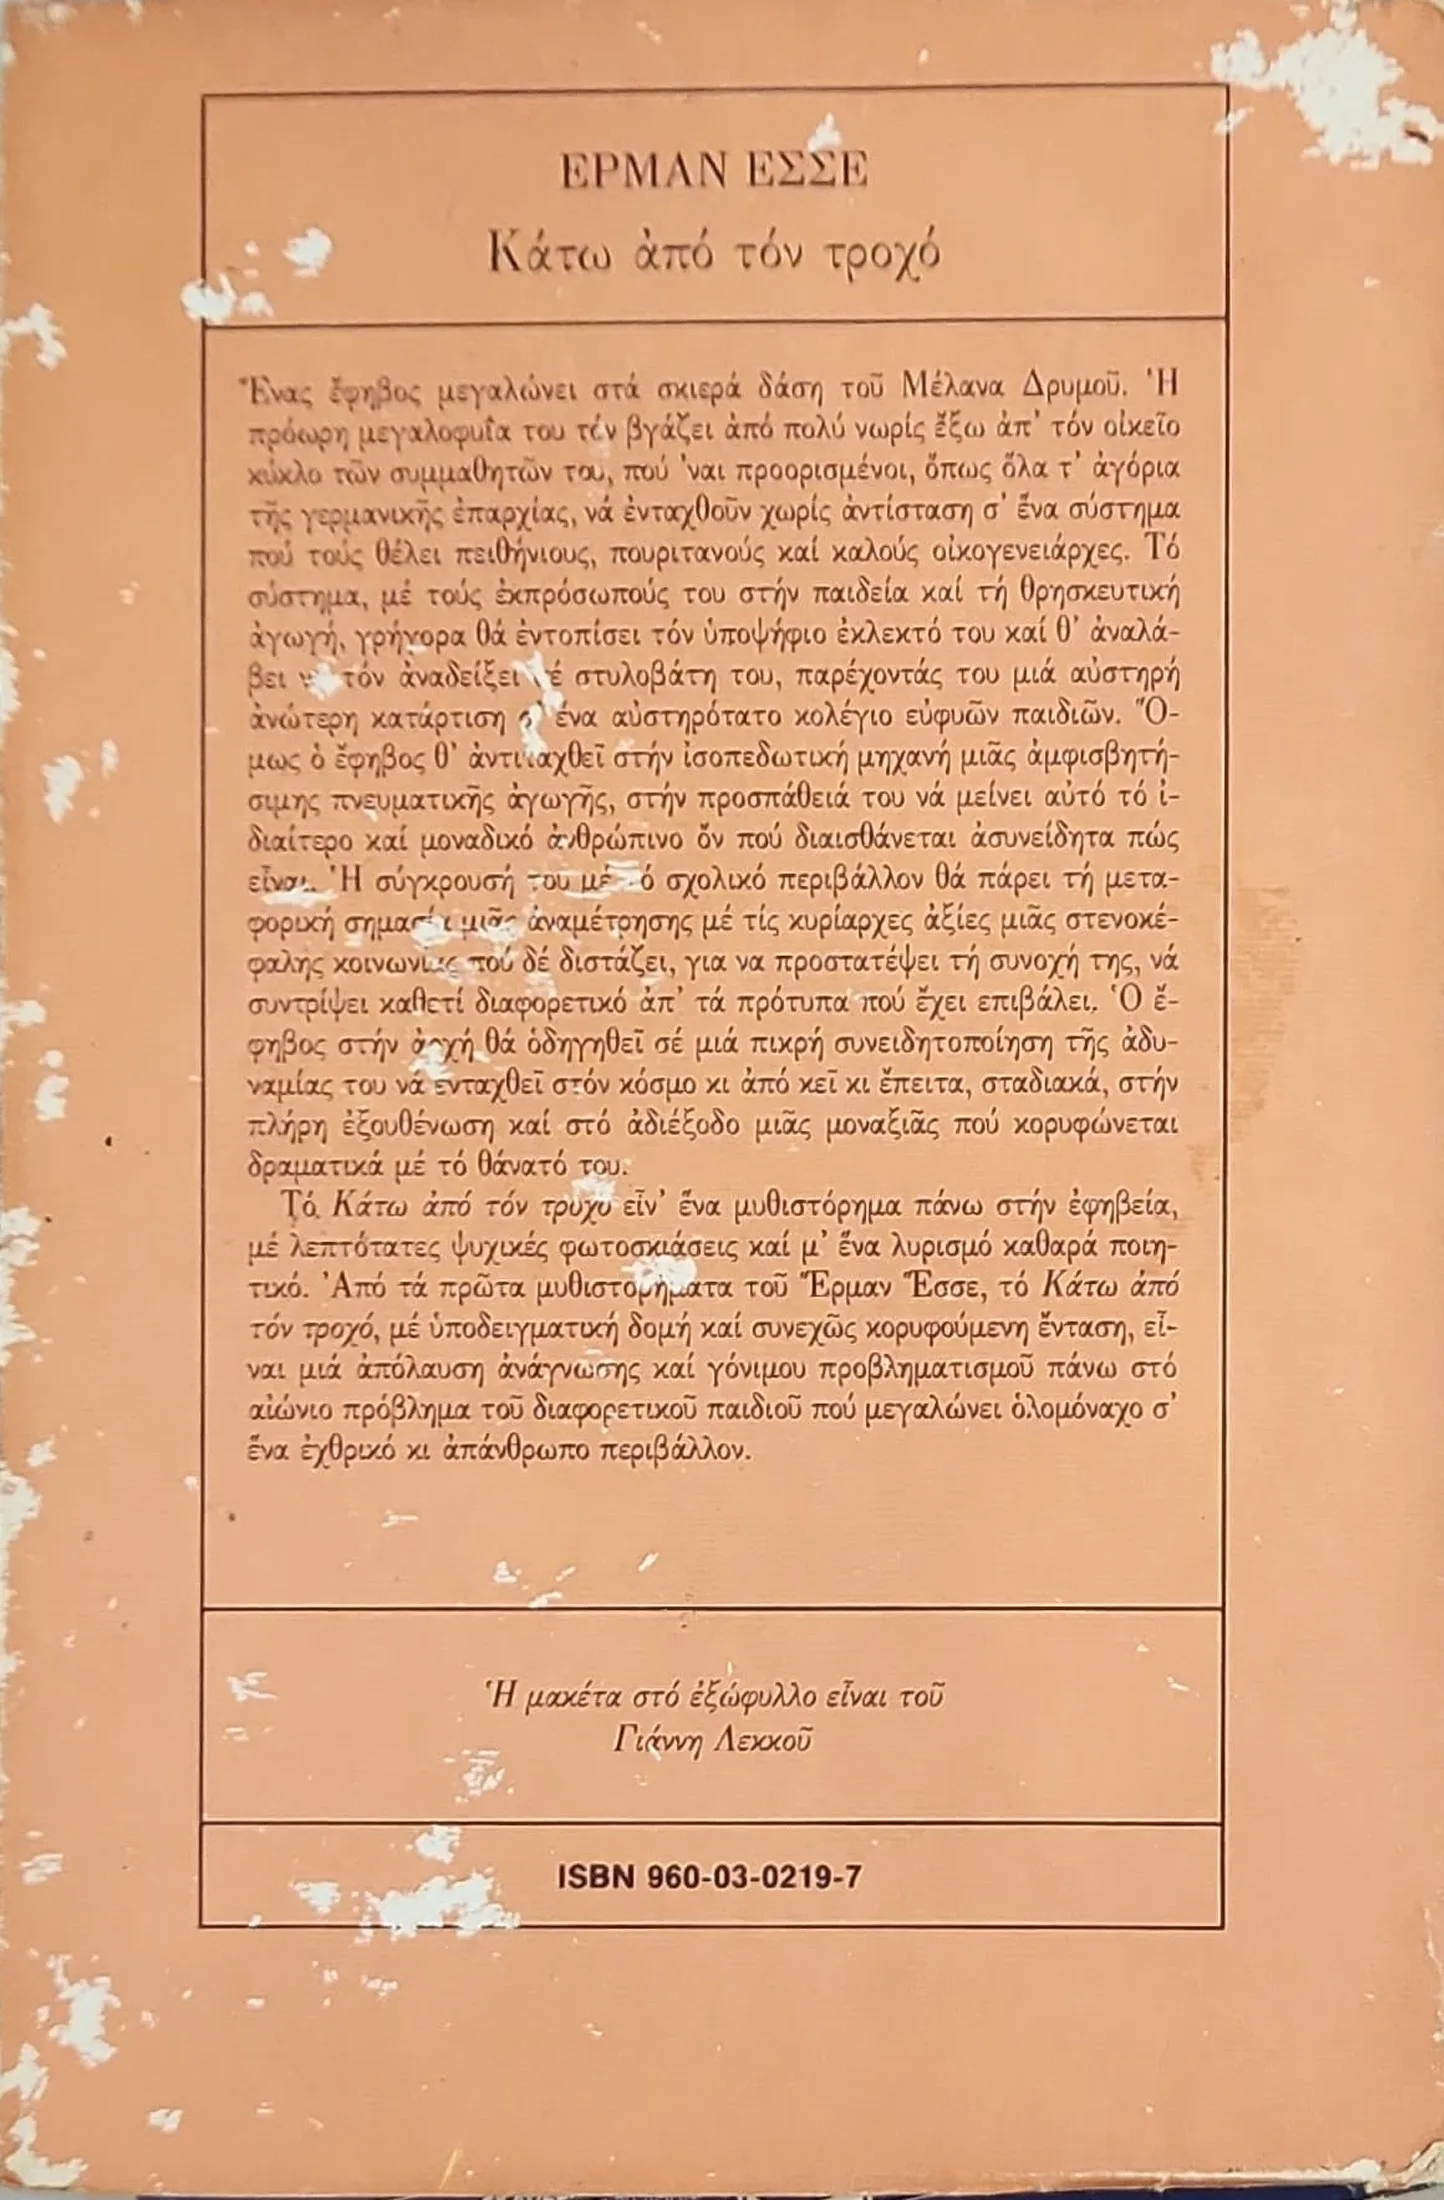 ΕΡΜΑΝ ΕΣΣΕ
Κάτω ἀπό τόν τροχό
Ἕνας ἔφηβος μεγαλώνει στά σκιερά δάση τοῦ Μέλανα Δρυμοῦ. Ἡ
πρόωρη μεγαλοφυΐα του τόν βγάζει ἀπό πολύ νωρίς ἔξω ἀπ' τόν οἰκεῖο
κύκλο τῶν συμμαθητῶν του, πού 'ναι προορισμένοι, ὅπως ὅλα τ' ἀγόρια
τῆς γερμανικῆς ἐπαρχίας, νά ἐνταχθοῦν χωρίς ἀντίσταση σ' ἕνα σύστημα
πού τούς θέλει πειθήνιους, πουριτανούς καί καλούς οἰκογενειάρχες. Τό
σύστημα, μέ τούς ἐκπρόσωπούς του στήν παιδεία καί τή θρησκευτική
ἀγωγή, γρήγορα θά ἐντοπίσει τόν ὑποψήφιο ἐκλεκτό του καί θ' ἀναλά-
βει τόν ἀναδείξει σέ στυλοβάτη του, παρέχοντάς του μιά αὐστηρή
ἀνώτερη κατάρτιση σ' ἕνα αὐστηρότατο κολέγιο εὐφυῶν παιδιῶν. Ὅ-
μως ὁ ἔφηβος θ' ἀντιταχθεῖ στήν ἰσοπεδωτική μηχανή μιᾶς ἀμφισβητή-
σιμης πνευματικῆς ἀγωγῆς, στήν προσπάθειά του νά μείνει αὐτό τό ἰ-
διαίτερο καί μοναδικό ἀνθρώπινο ὄν πού διαισθάνεται ἀσυνείδητα πώς
εἶναι. Ἡ σύγκρουσή του μέ τό σχολικό περιβάλλον θά πάρει τή μετα-
φορική σημασία μιᾶς ἀναμέτρησης μέ τίς κυρίαρχες ἀξίες μιᾶς στενοκέ-
φαλης κοινωνίας πού δέ διστάζει, για να προστατέψει τή συνοχή της, νά
συντρίψει καθετί διαφορετικό ἀπ' τά πρότυπα πού ἔχει επιβάλει. Ὁ ἔ-
φηβος στήν ἀρχή θά ὁδηγηθεῖ σέ μιά πικρή συνειδητοποίηση τῆς ἀδυ-
ναμίας του νά ἐνταχθεῖ στόν κόσμο κι ἀπό κεῖ κι ἔπειτα, σταδιακά, στήν
πλήρη ἐξουθένωση καί στό ἀδιέξοδο μιᾶς μοναξιᾶς πού κορυφώνεται
δραματικά μέ τό θάνατό του.
Τό Κάτω ἀπό τόν τροχό εἶν' ἕνα μυθιστόρημα πάνω στήν ἐφηβεία,
μέ λεπτότατες ψυχικές φωτοσκιάσεις καί μ' ἕνα λυρισμό καθαρά ποιη-
τικό. Ἀπό τά πρῶτα μυθιστορήματα τοῦ Ἕρμαν Ἔσσε, τό Κάτω ἀπό
τόν τροχό, μέ ὑποδειγματική δομή καί συνεχῶς κορυφούμενη ἔνταση, εἶ-
ναι μιά ἀπόλαυση ἀνάγνωσης καί γόνιμου προβληματισμοῦ πάνω στό
αἰώνιο πρόβλημα τοῦ διαφορετικοῦ παιδιοῦ πού μεγαλώνει ὁλομόναχο σ'
ἕνα ἐχθρικό κι ἀπάνθρωπο περιβάλλον.
Ἡ μακέτα στό ἐξώφυλλο εἶναι τοῦ
Γιάννη Λεκκοῦ
ISBN 960-03-0219-7